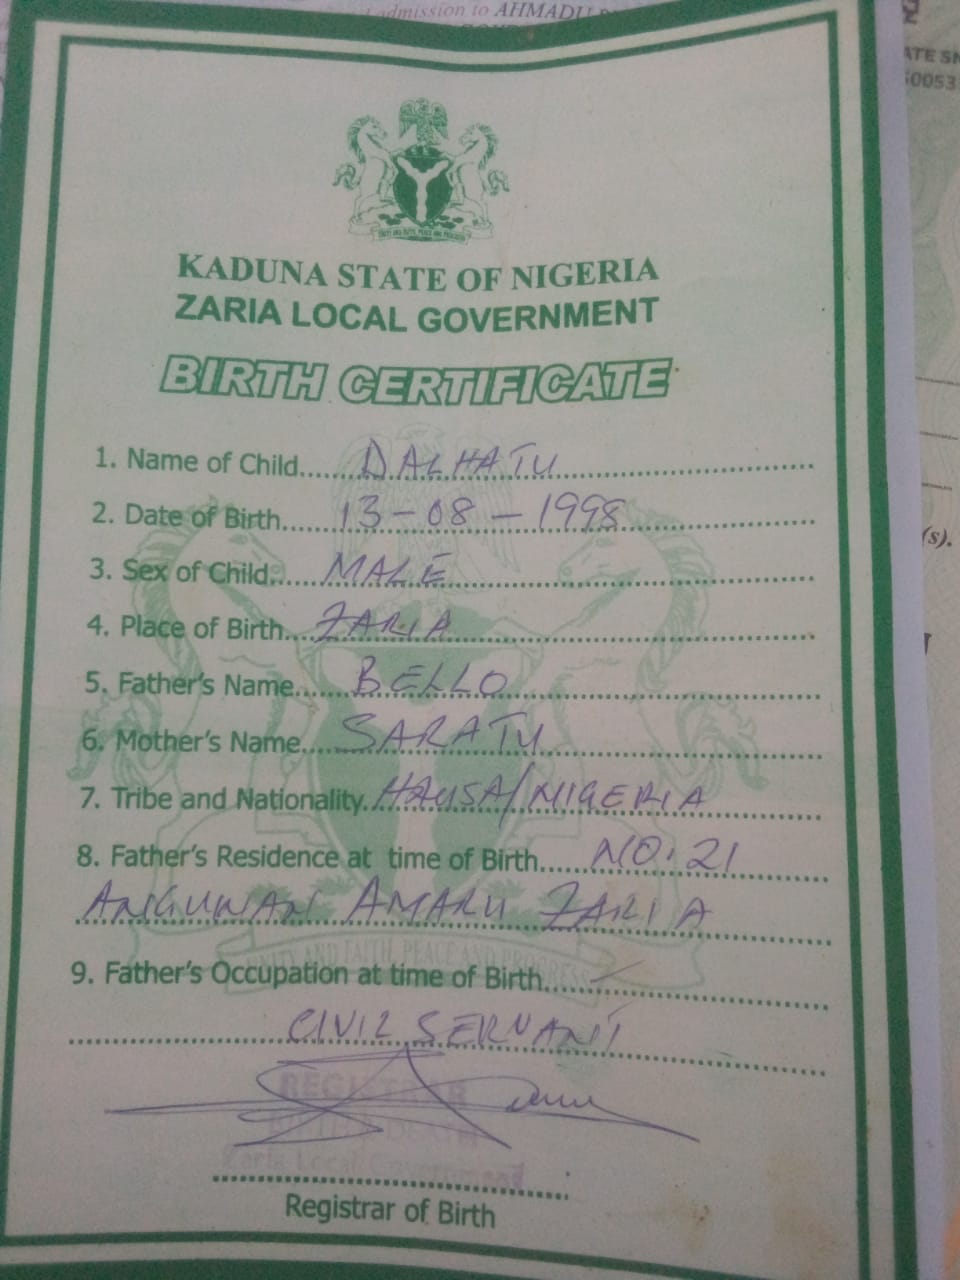 admission to AHMADU
ATE SN
KADUNA STATE OF NIGERIA
ZARIA LOCAL GOVERNMENT
BIRTH CERTIFICATE
1. Name of Child......DALHATU
2. Date of Birth......13-08-1998
3. Sex of Child......MALE
4. Place of Birth....ZARIA
5. Father's Name......BELLO
6. Mother's Name....SARATU
7. Tribe and Nationality.HAUSA/NIGERIA
8. Father's Residence at time of Birth.....NO. 21
ANGUWAN AMARU ZARIA
UNITY AND FAITH, PEACE AND PROGRESS
9. Father's Occupation at time of Birth....
CIVIL SERVANT
REGISTRAR
BIRTH & DEATH
Zaria Local Government
Registrar of Birth
(s).